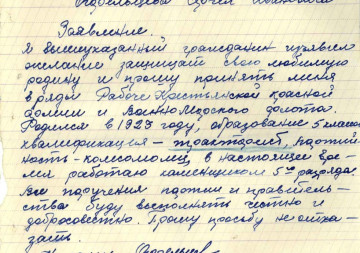 Заявление.
Я вышеуказанный гражданин изъявил
желание защищать свою любимую
родину и прошу принять меня
в ряды Рабоче Крестьянской красной
армии и Военно Морского флота.
Родился в 1923 году, образование 5 классов
квалификация - тракторист, партий
ность - комсомолец, в настоящее вре-
мя работаю каменщиком 5го разряда.
Все поручения партии и правитель-
ства буду выполнять честно и
добросовестно. Прошу просьбу не отка-
зать.